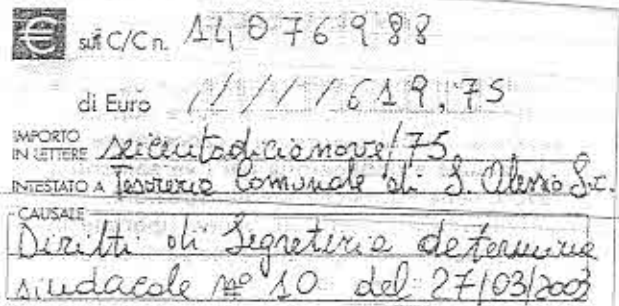 € sul C/C n. 14076988
di Euro / / / / 619,75
IMPORTO IN LETTERE seicentodicianove/75
INTESTATO A Tesoreria Comunale di S. Alessio Sic.
CAUSALE
Diritti di Segreteria determina
sindacale nº 10 del 27/03/2003